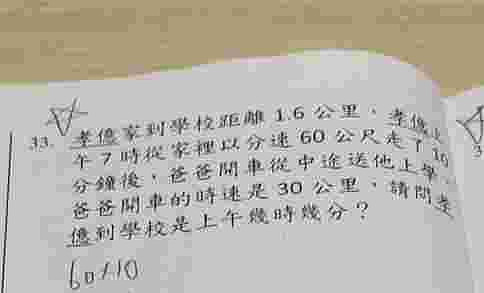 33. 孝億家到學校距離 1.6 公里,孝億上
午 7 時從家裡以分速 60 公尺走了 10
分鐘後,爸爸開車從中途送他上學,
爸爸開車的時速是 30 公里,請問孝
億到學校是上午幾時幾分?
60×10
3